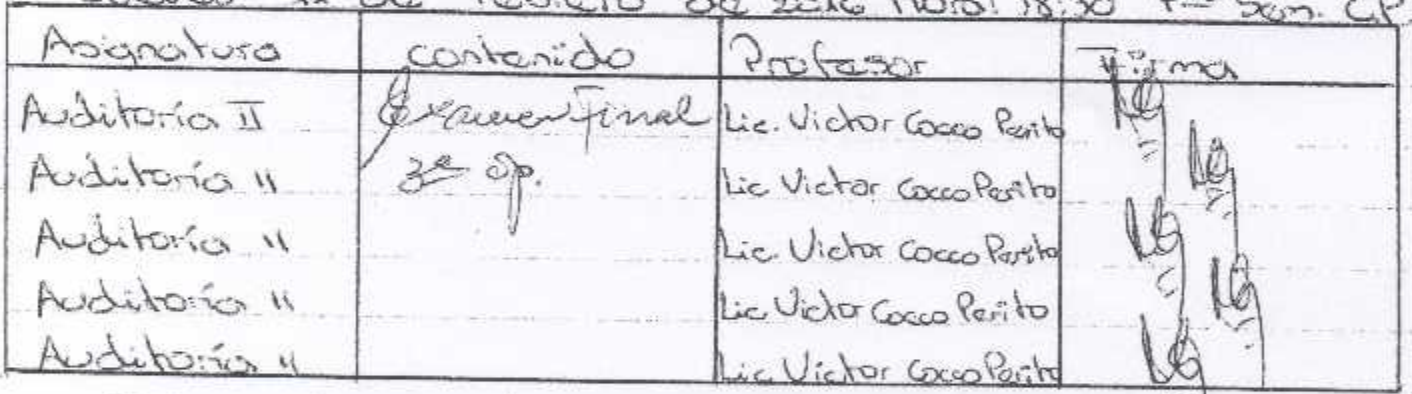 de Febrero de 2016 Hora: 18:30 7º Sem. C.P.
Asignatura contenido Profesor Firma
Auditoría II Examen Final Lic. Victor Cocco Perito
Auditoría " 3ª op. Lic Victor Cocco Perito
Auditoría " Lic. Victor Cocco Perito
Auditoría " Lic. Victor Cocco Perito
Auditoría " Lic Victor Cocco Perito